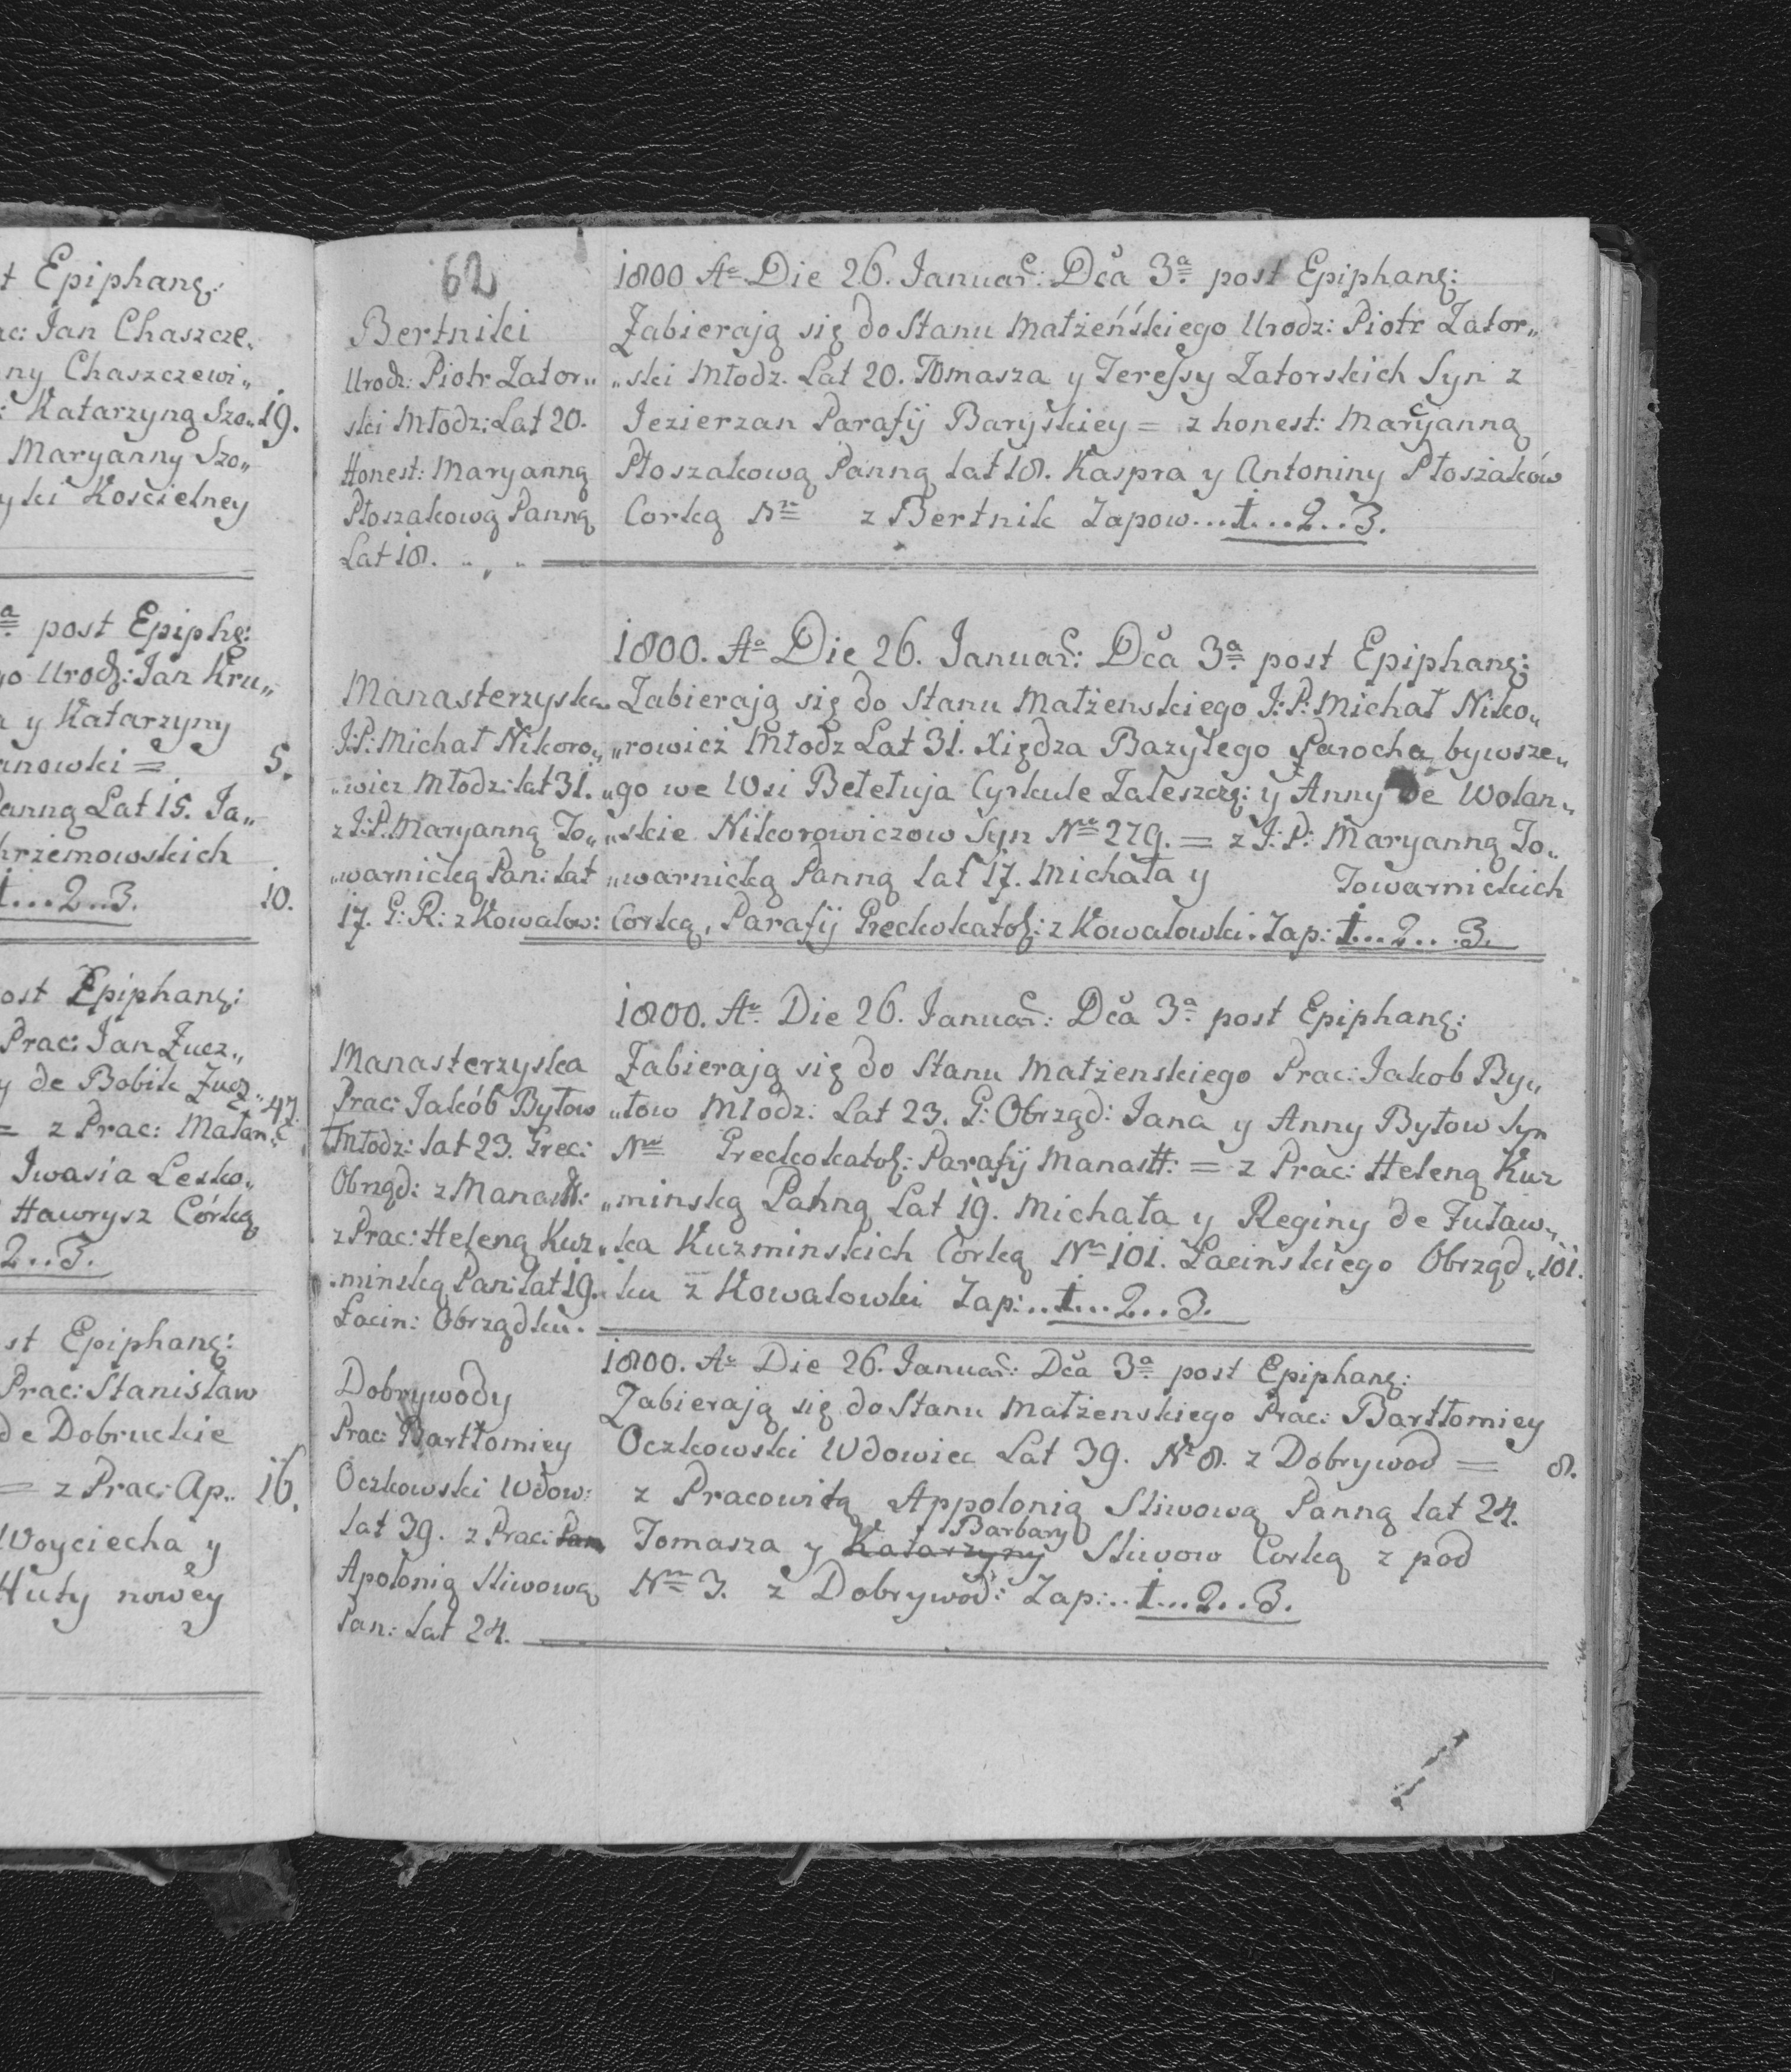 t Epiphanę:
ac: Jan Chaszcze,
ny Chaszczewi„
: Katarzyną Szo„ 19.
Maryanny Szo„
yki Kościelney
a post Epiphę:
go Urodz: Jan Kru„
a y Katarzyny
anowki = 5.
Panną Lat 15. Ja„
krzemowskich
1...2..3. 10.
ost Epiphanę:
Prac: Jan Zucz„
y de Bobik Zucz„ 47.
= z Prac: Matan„
Iwasia Lesko„
Hawrysz Córką
2..3.
st Epiphanę:
Prac: Stanisław
de Dobruckie
= z Prac: Ap„ 16.
Woyciecha y
Huty nowey
62
Bertniki
Urodz: Piotr Zator„
ski Młodz: Lat 20.
Honest: Maryanną
Płoszakową Panną
Lat 18.
1800 Ao Die 26. Januar: Dca 3a post Epiphanę:
Zabierają się do Stanu Małżeńśkiego Urodz: Piotr Zator„
„ski Młodz. Lat 20. Tomasza y Teressy Zatorskich Syn z
Jezierzan Parafij Baryskiey = z honest: Maryanną
Płoszakową Panną lat 18. Kaspra y Antoniny Płoszaków
Corką Nro z Bertnik Zapow...1...2..3.
Manasterzyska
J:P: Michał Nikoro„
„wicz Młodz: lat 31.
z J:P. Maryanną To„
„warnicką Pan: lat
17. G: R: z Kowalow:
1800. Ao Die 26. Januar: Dca 3a post Epiphanę:
Zabierają się do Stanu Małżenskiego J:P: Michał Niko„
„rowicz Młodz Lat 31. Xiędza Bazylego Parocha bywsze„
„go we Wsi Beteluja Cyrkule Zaleszczę: y Anny de Wolan„
„skie Nikorowiczow Syn Nro 279. = z J:P: Maryanną To„
„warnicką Panną lat 17. Michała y Towarnickich
Corką, Parafij Greckokatol: z Kowalowki. Zap: 1...2...3.
Manasterzyska
Prac: Jakób Bytow
Młodz: lat 23. Grec:
Obrząd: z Manastt:
z Prac: Heleną Kuz„
„minską Pan: lat 19.
Łacin: Obrządku.
1800. Ao Die 26. Januar: Dca 3a post Epiphanę:
Zabierają się do Stanu Małżenskiego Prac: Jakob By„
„tow Młodz: Lat 23. G: Obrząd: Jana y Anny Bytow Syn
Nro Greckokatol: Parafij Manastt: = z Prac: Heleną Kuz
„minską Panną Lat 19. Michała y Reginy de Futaw„
„ka Kuzminskich Corką Nro 101. Łacińskiego Obrząd„ 101.
„ku z Kowalowki Zap:..1...2..3.
Dobrywody
Prac: Bartłomiey
Oczkowski Wdow:
lat 39. z Prac: Pan
Apolonią Sliwową
Pan: Lat 24.
1800. Ao Die 26. Januar: Dca 3a post Epiphanę:
Zabierają się do Stanu Małżenskiego Prac: Bartłomiey
Oczkowski Wdowiec Lat 39. No 8. z Dobrywod = 8.
z Pracowitą Appolonią Sliwową Panną lat 24.
Barbary
Tomasza y Katarzyny Sliwow Corką z pod
Nro 3. z Dobrywod: Zap:..1...2..3.